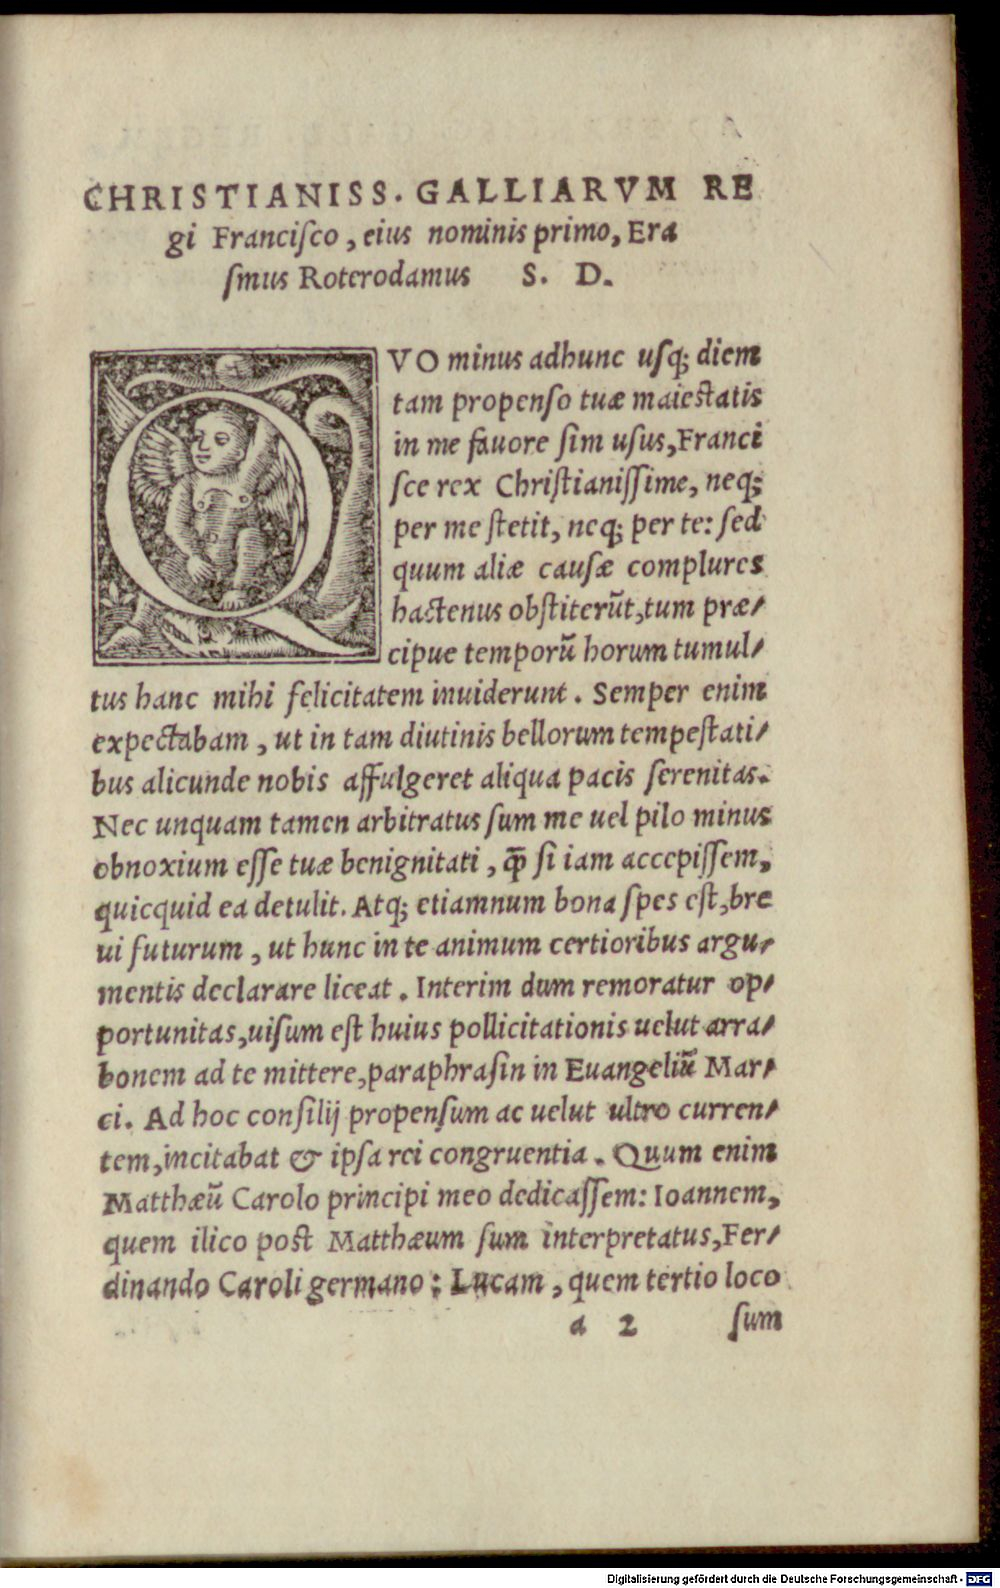 CHRISTIANISS. GALLIARVM RE
gi Franciſco, eius nominis primo, Era
ſmus Roterodamus S. D.
QVO minus adhunc uſq; diem
tam propenſo tuæ maieſtatis
in me fauore ſim uſus, Franci
ſce rex Chriſtianiſſime, neq;
per me ſtetit, neq; per te: ſed
quum aliæ cauſæ complures
hactenus obſtiterūt, tum præ/
cipue temporū horum tumul/
tus hanc mihi felicitatem inuiderunt. Semper enim
expectabam, ut in tam diutinis bellorum tempeſtati/
bus alicunde nobis affulgeret aliqua pacis ſerenitas.
Nec unquam tamen arbitratus ſum me uel pilo minus
obnoxium eſſe tuæ benignitati, q̄ ſi iam accepiſſem,
quicquid ea detulit. Atq; etiamnum bona ſpes eſt, bre
ui futurum, ut hunc in te animum certioribus argu/
mentis declarare liceat. Interim dum remoratur op/
portunitas, uiſum eſt huius pollicitationis uelut arra/
bonem ad te mittere, paraphraſin in Euangeliū Mar/
ci. Ad hoc conſilij propenſum ac uelut ultro curren/
tem, incitabat & ipſa rei congruentia. Quum enim
Matthæū Carolo principi meo dedicaſſem: Ioannem,
quem ilico poſt Matthæum ſum interpretatus, Fer/
dinando Caroli germano: Lucam, quem tertio loco
a 2 ſum
Digitalisierung gefördert durch die Deutsche Forschungsgemeinschaft - DFG